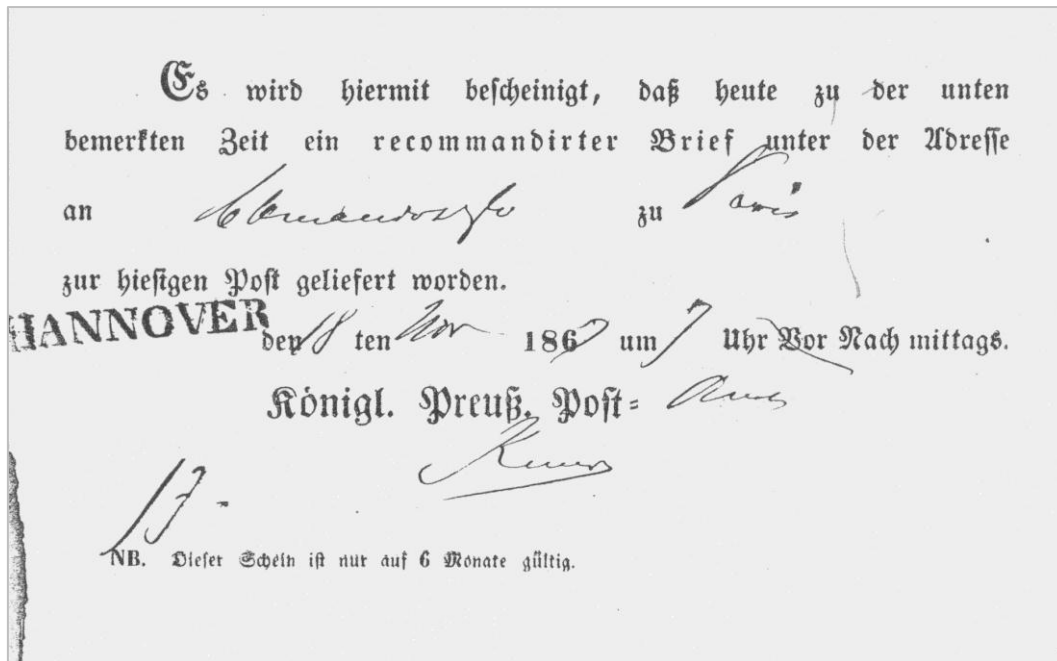 Es wird hiermit bescheinigt, daß heute zu der unten
bemerkten Zeit ein recommandirter Brief unter der Adresse
an zu Paris
zur hiesigen Post geliefert worden.
HANNOVER den 18 ten Nov 1867 um 7 Uhr Vor Nach mittags.
Königl. Preuß. Post=
NB. Dieser Schein ist nur auf 6 Monate gültig.